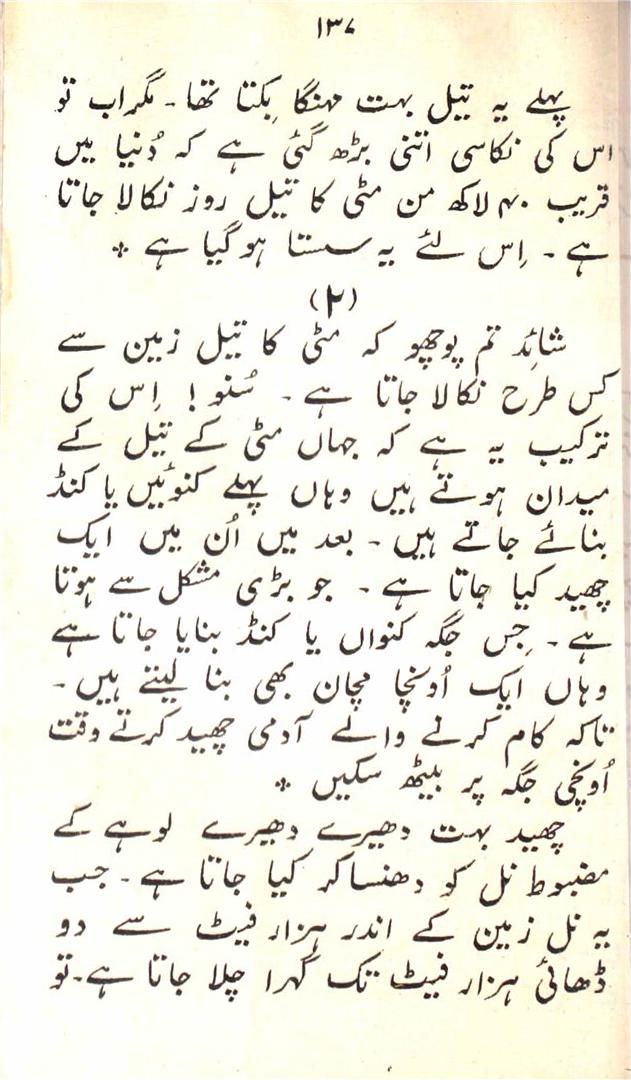 ۱۳۷
پہلے یہ تیل بہت مہنگا بِکتا تھا۔ مگر اب تو
اس کی نکاسی اتنی بڑھ گئی ہے کہ دُنیا میں
قریب ۴۰ لاکھ من مٹی کا تیل روز نکالا جاتا
ہے۔ اِس لئے یہ سستا ہو گیا ہے ٭
(۲)
شائِد تم پوچھو کہ مٹی کا تیل زمین سے
کس طرح نکالا جاتا ہے۔ سُنو! اِس کی
ترکیب یہ ہے کہ جہاں مٹی کے تیل کے
میدان ہوتے ہیں وہاں پہلے کنوئیں یا کنڈ
بنائے جاتے ہیں۔ بعد میں اُن میں ایک
چھید کیا جاتا ہے۔ جو بڑی مشکل سے ہوتا
ہے۔ جِس جگہ کنواں یا کنڈ بنایا جاتا ہے
وہاں ایک اُونچا مچان بھی بنا لیتے ہیں۔
تاکہ کام کرنے والے آدمی چھید کرتے وقت
اُونچی جگہ پر بیٹھ سکیں ٭
چھید بہت دھیرے دھیرے لوہے کے
مضبوط نل کو دھنسا کر کیا جاتا ہے۔ جب
یہ نل زمین کے اندر ہزار فیٹ سے دو
ڈھائی ہزار فیٹ تک گہرا چلا جاتا ہے۔ تو